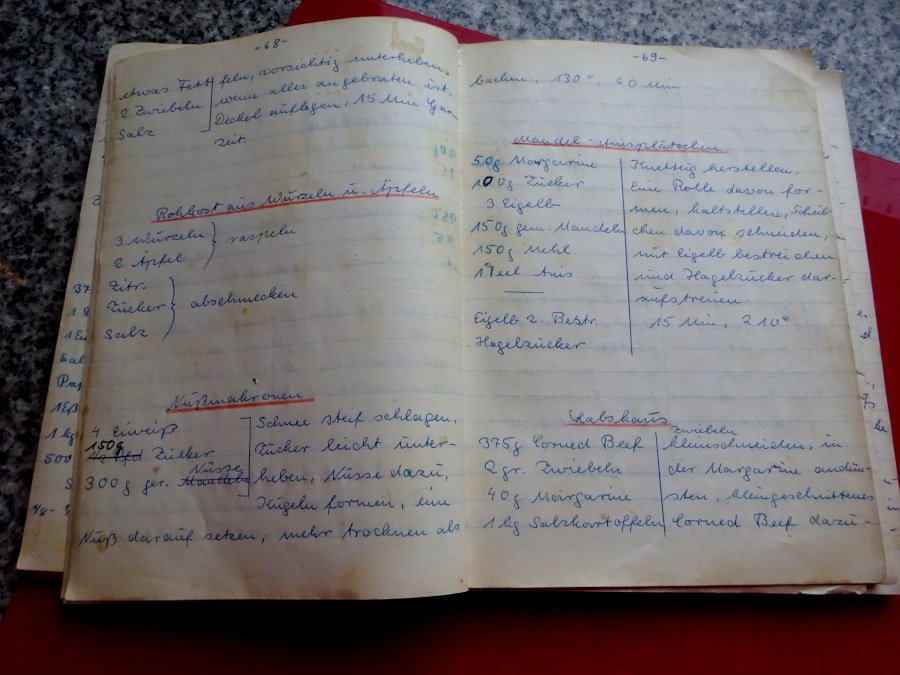 -68-
etwas Fett feln, vorsichtig unterheben,
2 Zwiebeln wenn alles angebraten ist,
Salz Deckel auflegen, 15 Min Gar-
zeit
Rohkost aus Wurzeln u. Äpfeln
3 Wurzeln
2 Äpfel raspeln
Zitr.
Zucker abschmecken
Salz
Nußmakronen
4 Eiweiß Schnee steif schlagen,
150g
1/2 Pfd Zucker Zucker leicht unter-
Nüsse
300g ger. Mandeln heben, Nüsse dazu,
Kugeln formen, eine
Nuß darauf setzen, mehr trocknen als
-69-
backen, 130° 60 Min
Mandel-Anisplätzchen
50g Margarine Knetteig herstellen.
100g Zucker Eine Rolle davon for-
3 Eigelb men, kaltstellen, Scheib-
150g gem. Mandeln chen davon schneiden,
150g Mehl mit Eigelb bestreichen
1 Teel Anis und Hagelzucker dar-
aufstreuen
Eigelb z. Bestr. 15 Min, 210°
Hagelzucker
Labskaus
Zwiebeln
375g Corned Beef kleinschneiden, in
2 gr. Zwiebeln der Margarine andün-
40g Margarine sten, kleingeschnittenes
1 kg Salzkartoffeln Corned Beef dazu-
37
1 kg
500